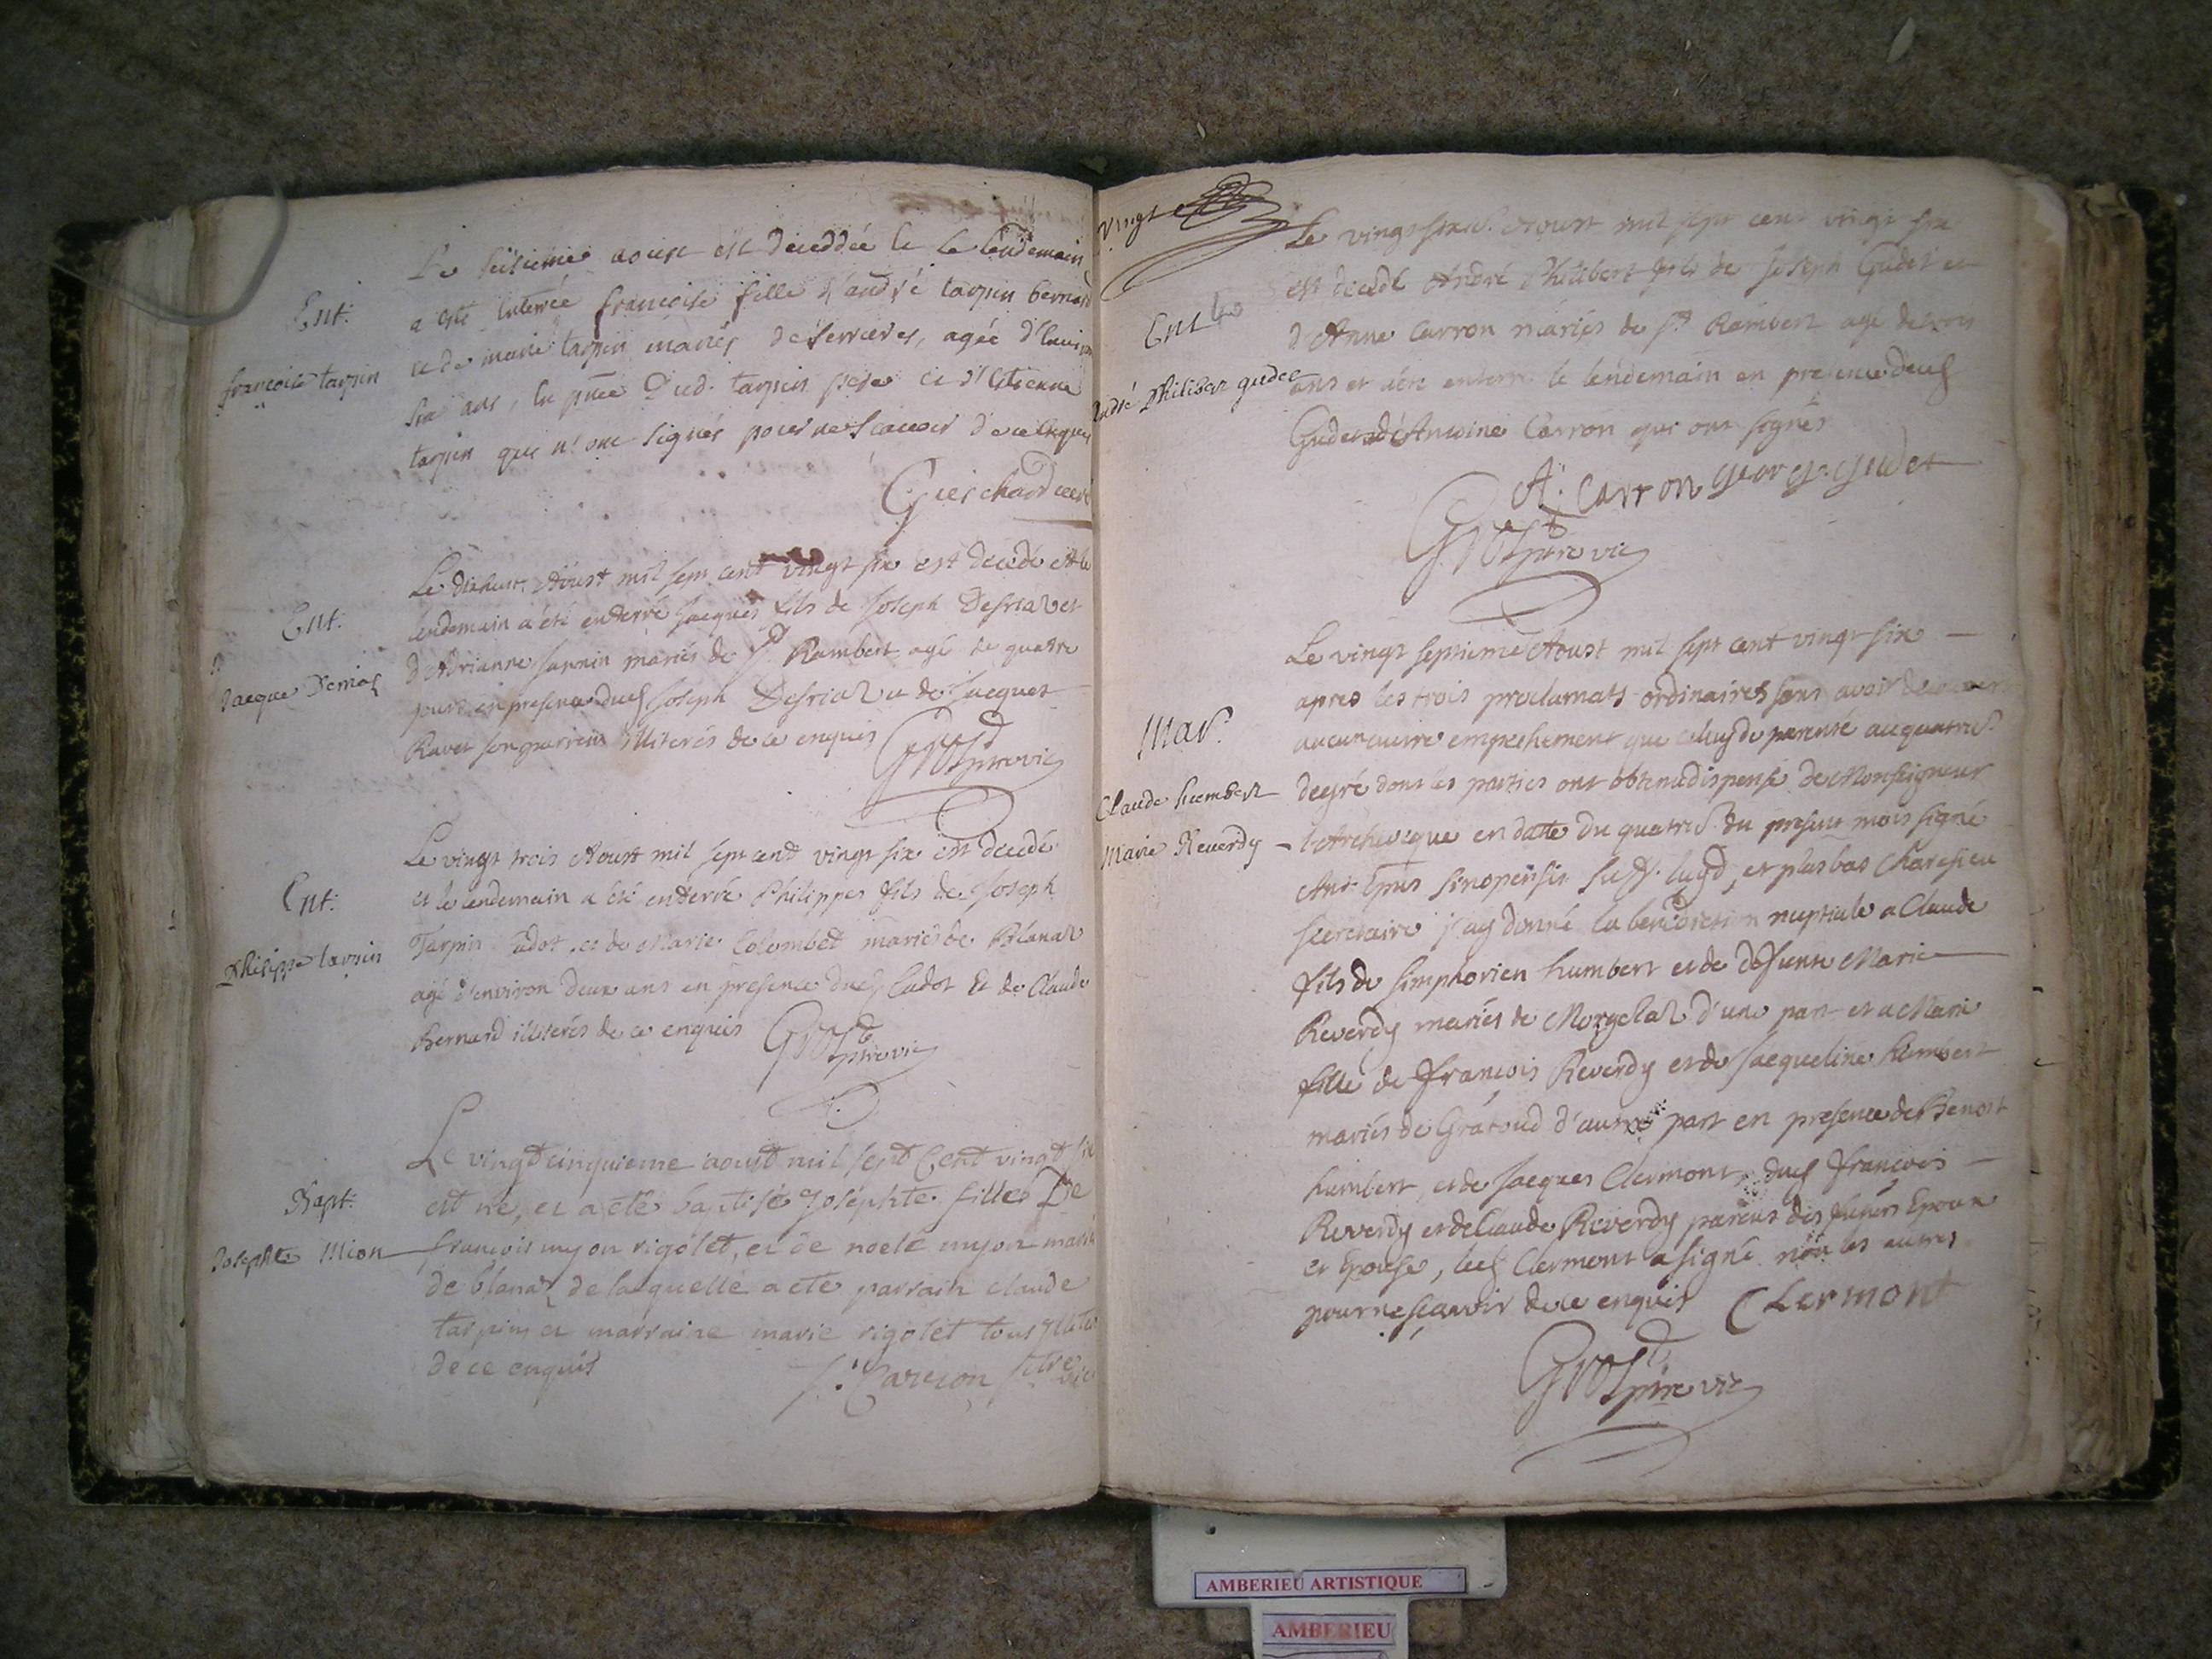 Ent:
françoise tarpin
Le seisieme aoust est deceddée et le lendemain
a esté enterrée françoise fille d'andré tarpin bernard
et de marie tarpin mariés de serrieres, agée d'environ
six ans, en pnce dud. tarpin pere et d'Estienne
tarpin qui n'ont signés pour ne scavoir de ce enquis
Guichard curé
Ent:
Jacque Demias
Le dixhuit. Aoust mil sept cent vingt six est decedé et le
lendemain a été enterré Jacques fils de Joseph Desriaz et
d'Adrianne mariés de St Rambert agé de quatre
jours en presence dud Joseph Desriaz et de Jacques
Ravet son parrein illiterés de ce enquis
Gros ptre vic
Ent:
Philippe tarpin
Le vingt trois Aoust mil sept cent vingt six est decedé
et le lendemain a été enterré Philippes fils de Joseph
Tarpin Cadot et de Marie Colombet mariés de Blanaz
agé d'environ deux ans en presence dud Cadot et de Claude
Bernard illiterés de ce enquis
Gros ptre vic
Bapt:
Josephte Mion
Le vingt cinquieme aoust mil sept Cent vingt six
est né, et a eté baptisé Josephte fille De
françois myon rigolet, et de noele myon mariés
de blanaz de laquelle a eté parrain claude
tarpin et marraine marie rigolet tous
de ce enquis
vingt
Ent
André Philibert gudet
Le vingt Aoust mil sept cent vingt six
est decedé André Philibert fils de Joseph Gudet et
d'Anne Carron mariés de St Rambert agé de trois
ans et a été enterré le lendemain en presence dud
Gudet et d'Antoine Carron qui ont signés
A. Carron george gudet
Gros ptre vic
Mar.
Claude humbert
Marie Reverdy
Le vingt septieme Aoust mil sept cent vingt six
apres les trois proclamats ordinaires sans avoir decouvert
aucun autre empechement que celuy de parenté au quatrie.
degré dont les parties ont obtenu dispense de Monseigneur
l'Archeveque en datte du quatrie. du present mois signé
Ant. Epus sinopensis suff. lugd, et plus bas
secretaire j'ay donné la benediction nuptiale a Claude
fils de simphorien humbert et de defunte Marie
Reverdy mariés de Morgelaz d'une part et a Marie
fille de François Reverdy et de Jacqueline humbert
mariés de Gratoud d'autre part en presence de Benoit
humbert, et de Jacques Clermont, dud françois
Reverdy et de Claude Reverdy parens des futurs Epoux
et Epouse, led Clermont a signé non les autres
pour ne sçavoir de ce enquis Clermont
Gros ptre vic
AMBERIEU ARTISTIQUE
AMBERIEU